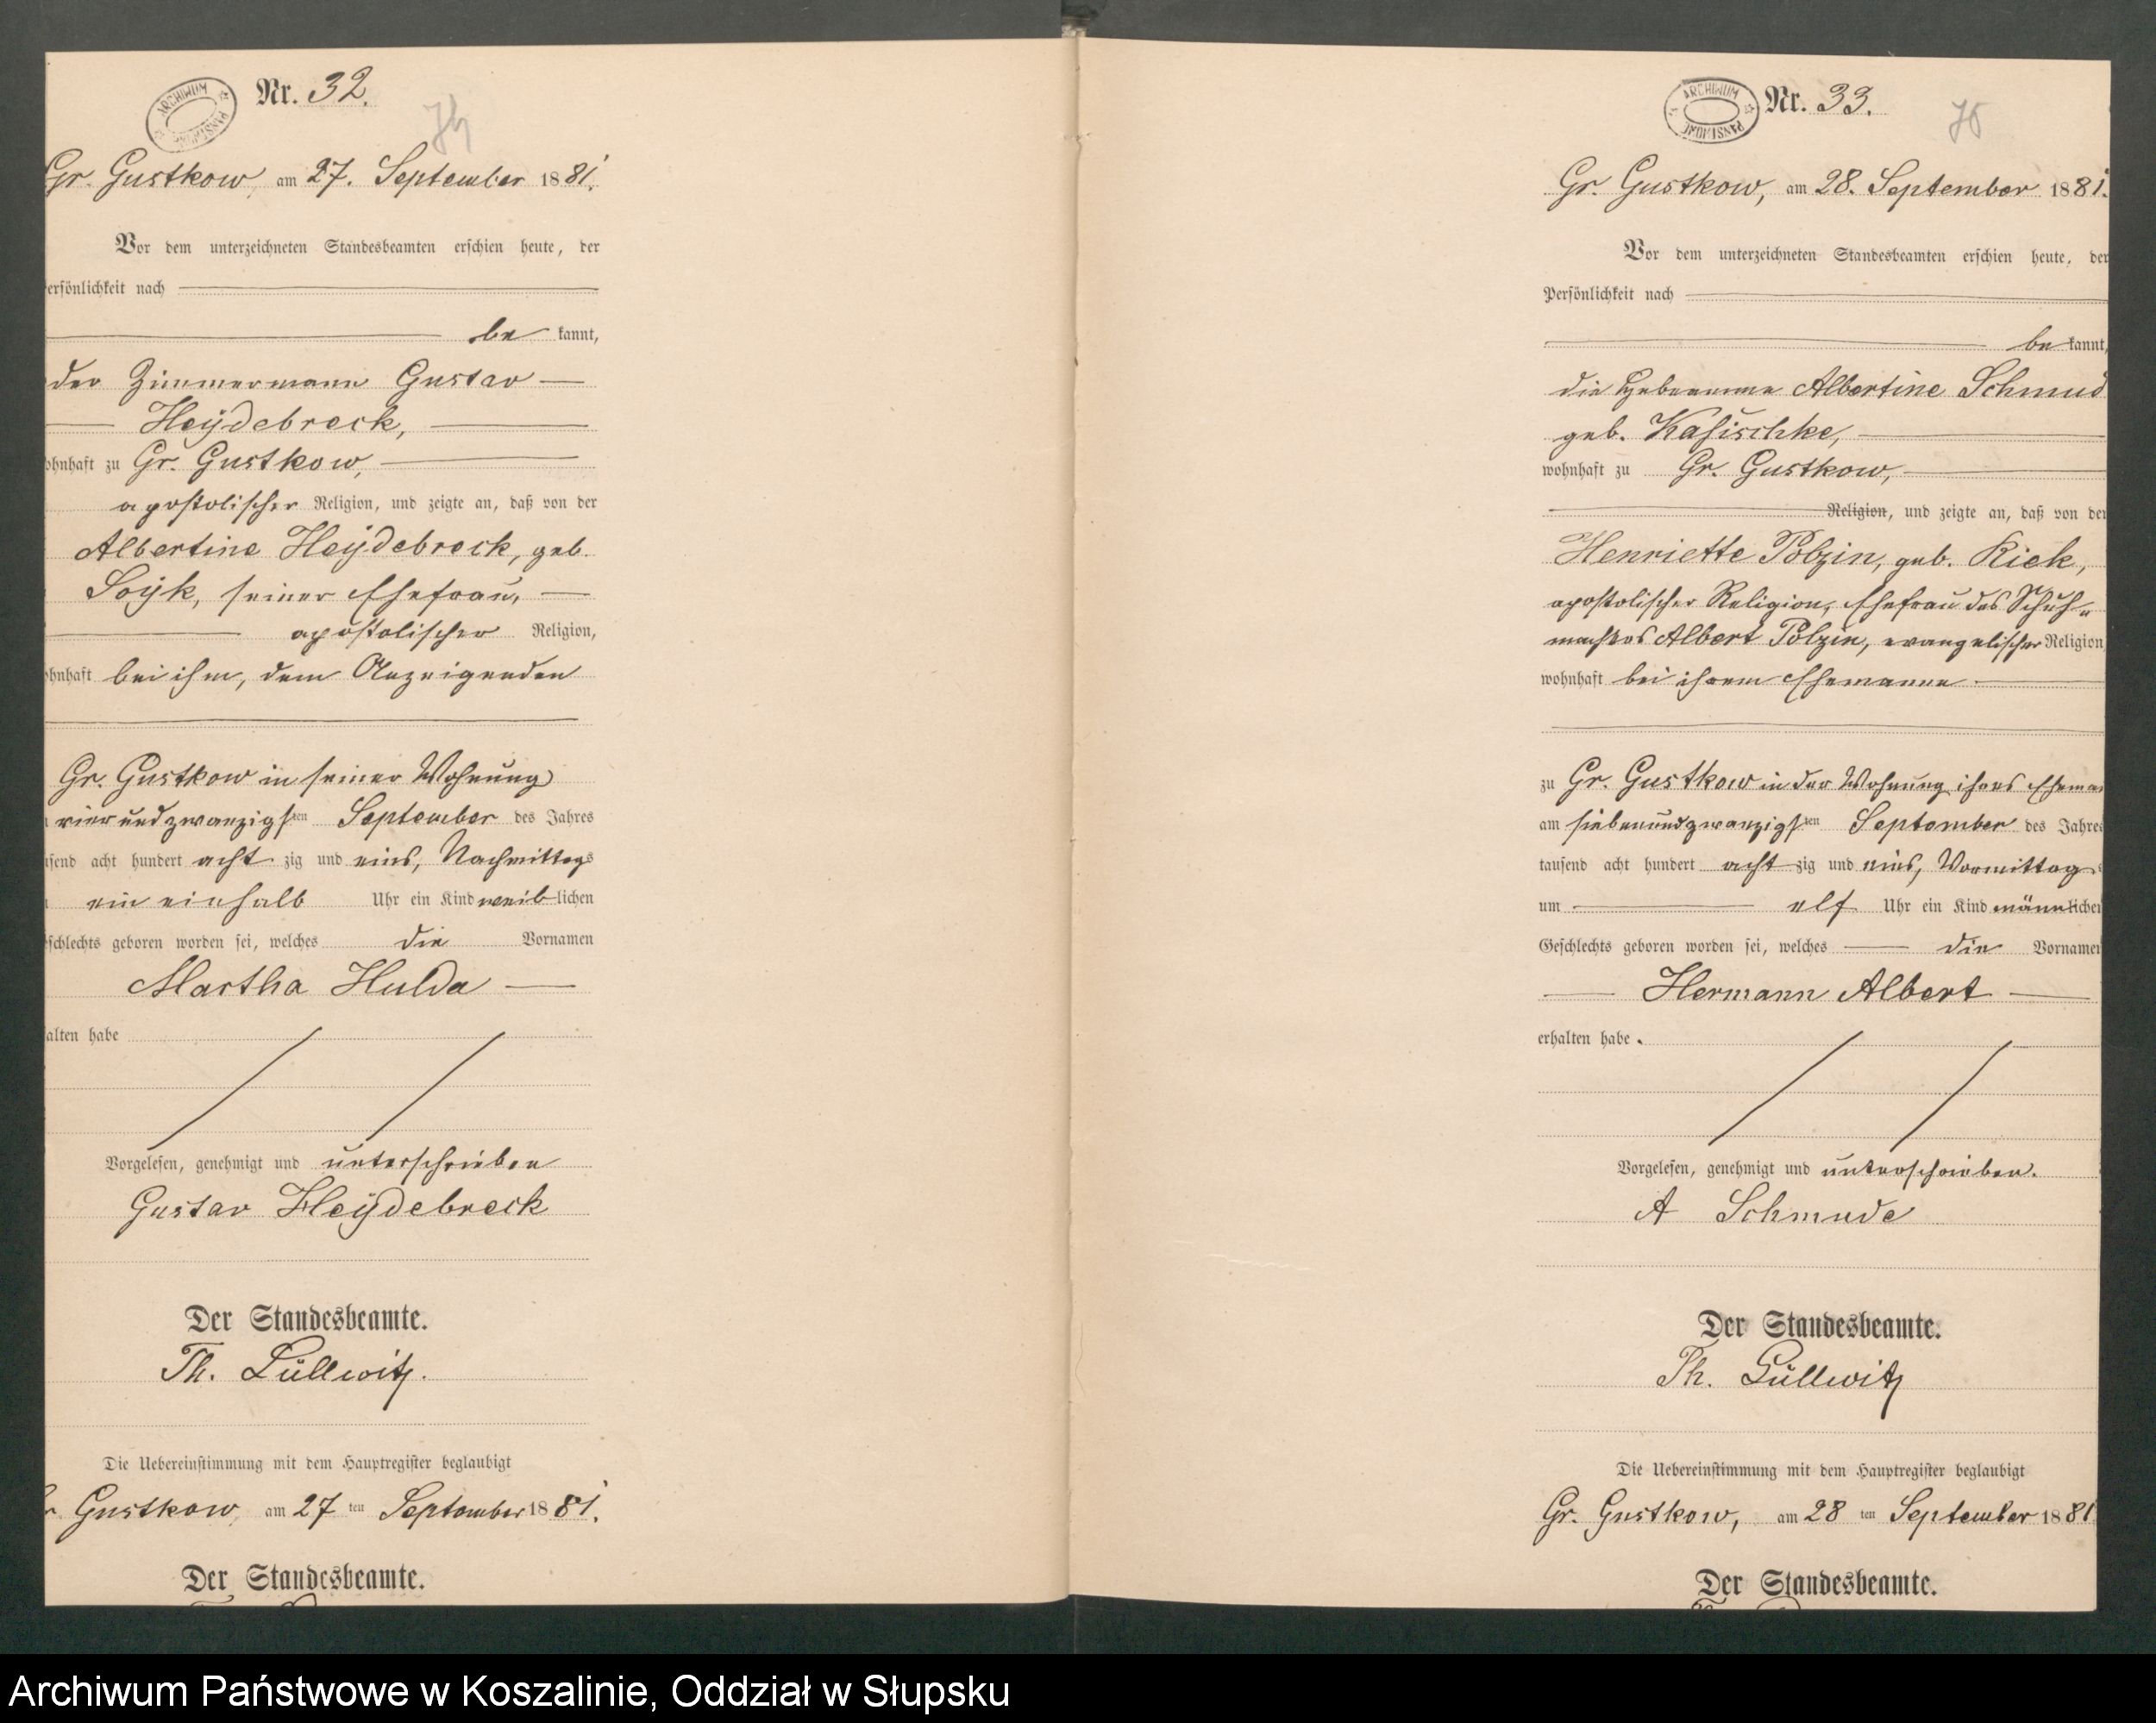 ARCHIWUM PAŃSTWOWE
Nr. 32.
Gr. Gustkow, am 27. September 1881.
Vor dem unterzeichneten Standesbeamten erschien heute, der
ersönlichkeit nach
be kannt,
der Zimmermann Gustav
Heydebreck,
ohnhaft zu Gr. Gustkow,
apostolischer Religion, und zeigte an, daß von der
Albertine Heydebreck, geb.
Soyk, seiner Ehefrau,
apostolischer Religion,
ohnhaft bei ihm, dem Anzeigenden
Gr. Gustkow in seiner Wohnung
vierundzwanzigsten September des Jahres
usend acht hundert acht zig und eins, Nachmittags
ein einhalb Uhr ein Kind weiblichen
eschlechts geboren worden sei, welches die Vornamen
Martha Hulda
alten habe
Vorgelesen, genehmigt und unterschrieben
Gustav Heydebreck
Der Standesbeamte.
Th. Lüllwitz.
Die Uebereinstimmung mit dem Hauptregister beglaubigt
r. Gustkow, am 27 ten September 1881.
Der Standesbeamte.
ARCHIWUM PAŃSTWOWE
Nr. 33.
75
Gr. Gustkow, am 28. September 1881.
Vor dem unterzeichneten Standesbeamten erschien heute, der
Persönlichkeit nach
be kannt,
die Hebeamme Albertine Schmud
geb. Kasischke,
wohnhaft zu Gr. Gustkow,
Religion, und zeigte an, daß von der
Henriette Polzin, geb. Kiek,
apostolischer Religion, Ehefrau des Schuh-
machers Albert Polzin, evangelischer Religion
wohnhaft bei ihrem Ehemanne
zu Gr. Gustkow in der Wohnung ihres Ehema
am siebenundzwanzigsten September des Jahres
tausend acht hundert acht zig und eins, Vormittags
um elf Uhr ein Kind männlichen
Geschlechts geboren worden sei, welches die Vornamen
Hermann Albert
erhalten habe.
Vorgelesen, genehmigt und unterschrieben.
A Schmude
Der Standesbeamte.
Th. Lüllwitz
Die Uebereinstimmung mit dem Hauptregister beglaubigt
Gr. Gustkow, am 28 ten September 1881
Der Standesbeamte.
Archiwum Państwowe w Koszalinie, Oddział w Słupsku